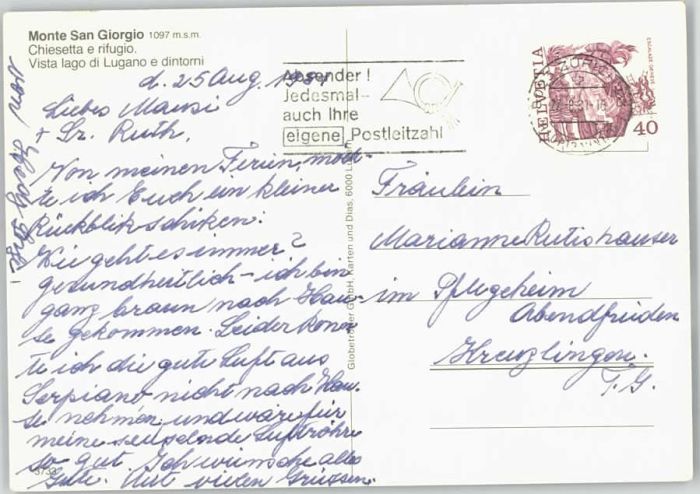 Monte San Giorgio 1097 m.s.m.
Chiesetta e rifugio.
Vista lago di Lugano e dintorni
d. 25 Aug. 1981
Liebes Mausi
+ Sr. Ruth,
Von meinen Ferien, möch-
te ich Euch ein kleiner
Rückblik schiken.
Wie geht es immer?
gesundheitlich – ich bin
ganz braun nach Hau-
se gekommen. Leider konn
te ich die gute Luft aus
Serpiano nicht nach Hau
se nehmen und wäre für
meine seuselnde Luftröhre
so gut. Ich wünsche alles
Gute. Mit vielen Grüssen.
3733
Globetrotter GmbH, Karten und Dias, 6000
Absender!
Jedesmal
auch Ihre
eigene Postleitzahl
HELVETIA
ESCALADE GENÈVE
40
Fräulein
Marianne Rutishauser
im Pflegeheim
Abendfrieden
Kreuzlingen.
T.G.